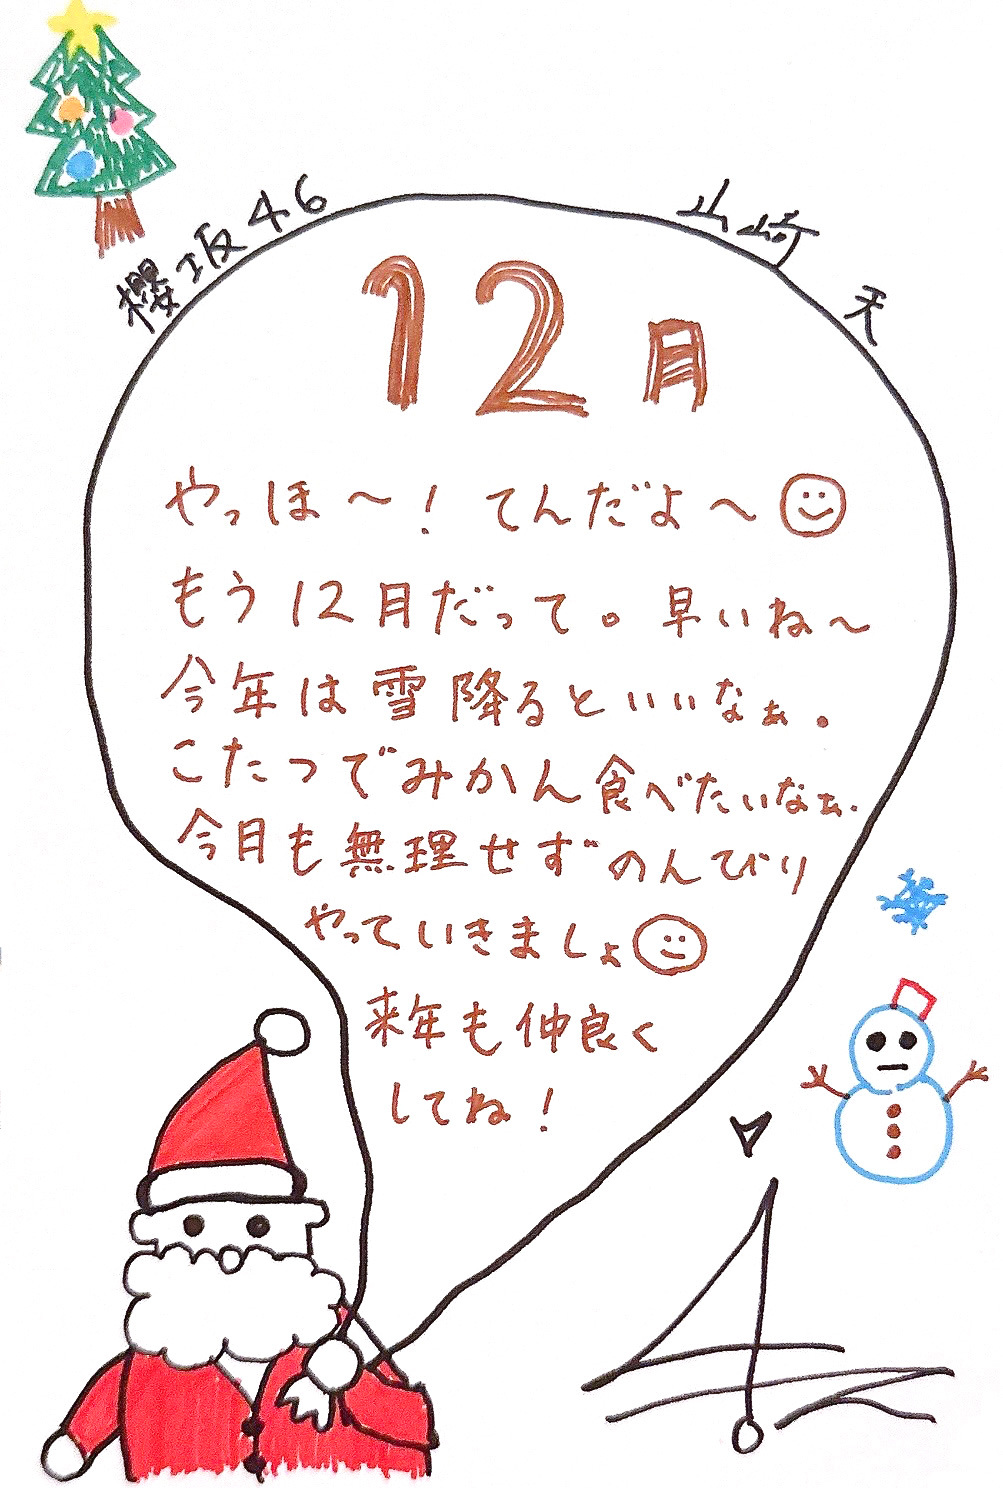 櫻坂46 山﨑 天
12月
やっほ〜！てんだよ〜
もう12月だって。早いね〜
今年は雪降るといいなぁ。
こたつでみかん食べたいなぁ.
今月も無理せずのんびり
やっていきましょ
来年も仲良く
してね！